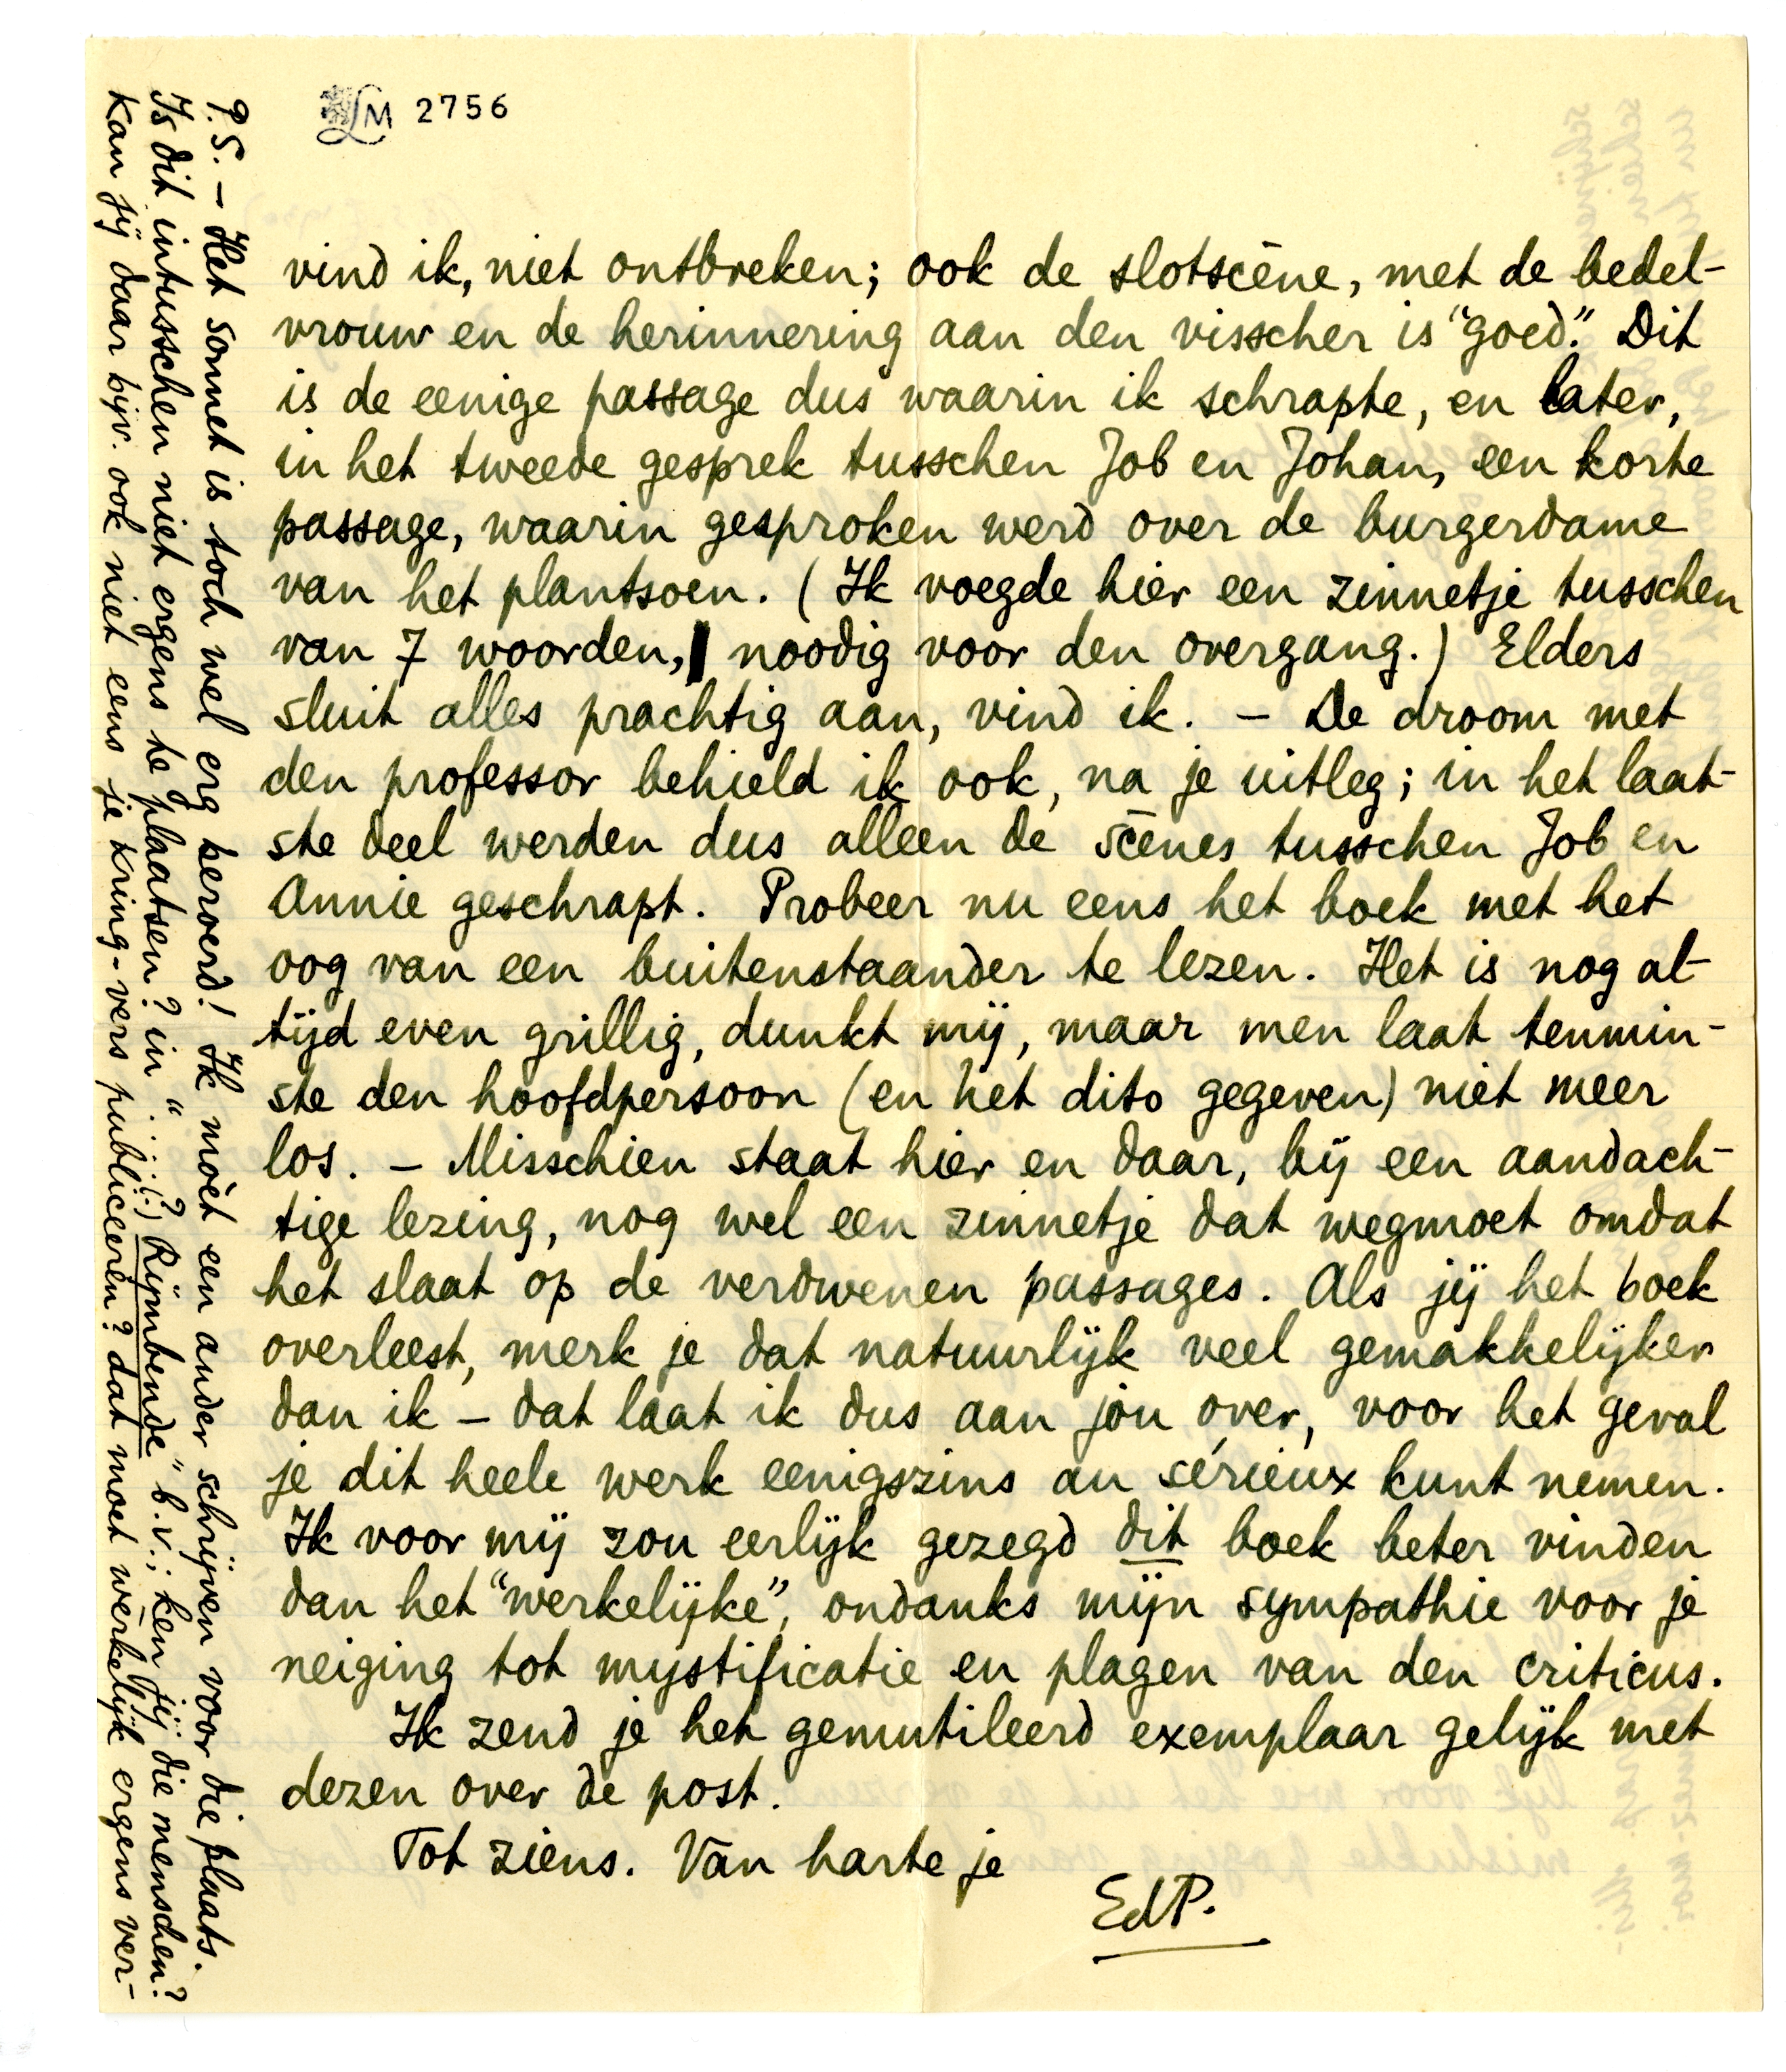 LM 2756
vind ik, niet ontbreken; ook de slotscène, met de bedel-
vrouw en de herinnering aan den visscher is "goed". Dit
is de eenige passage dus waarin ik schrapte, en later,
in het tweede gesprek tusschen Job en Johan, een korte
passage, waarin gesproken werd over de burgerdame
van het plantsoen. (Ik voegde hier een zinnetje tusschen
van 7 woorden, noodig voor den overgang.) Elders
sluit alles prachtig aan, vind ik. – De droom met
den professor behield ik ook, na je uitleg; in het laat-
ste deel werden dus alleen de scènes tusschen Job en
Annie geschrapt. Probeer nu eens het boek met het
oog van een buitenstaander te lezen. Het is nog al-
tijd even grillig, dunkt mij, maar men laat tenmin-
ste den hoofdpersoon (en het dito gegeven) niet meer
los. – Misschien staat hier en daar, bij een aandach-
tige lezing, nog wel een zinnetje dat wegmoet omdat
het slaat op de verdwenen passages. Als jij het boek
overleest, merk je dat natuurlijk veel gemakkelijker
dan ik – dat laat ik dus aan jou over, voor het geval
je dit heele werk eenigszins au sérieux kunt nemen.
Ik voor mij zou eerlijk gezegd dit boek beter vinden
dan het "werkelijke", ondanks mijn sympathie voor je
neiging tot mystificatie en plagen van den criticus.
Ik zend je het gemutileerd exemplaar gelijk met
dezen over de post.
Tot ziens. Van harte je
EdP.
P.S. – Het sonnet is toch wel erg beroerd! Ik mòet een ander schrijven voor die plaats.
Is dit intusschen niet ergens te plaatsen? in " . . . . (?) Rijmbende" b.v.; ken jij die menschen?
Kan jij daar bijv. ook niet eens je kring-vers publiceeren? dat moet wèrkelijk ergens ver-